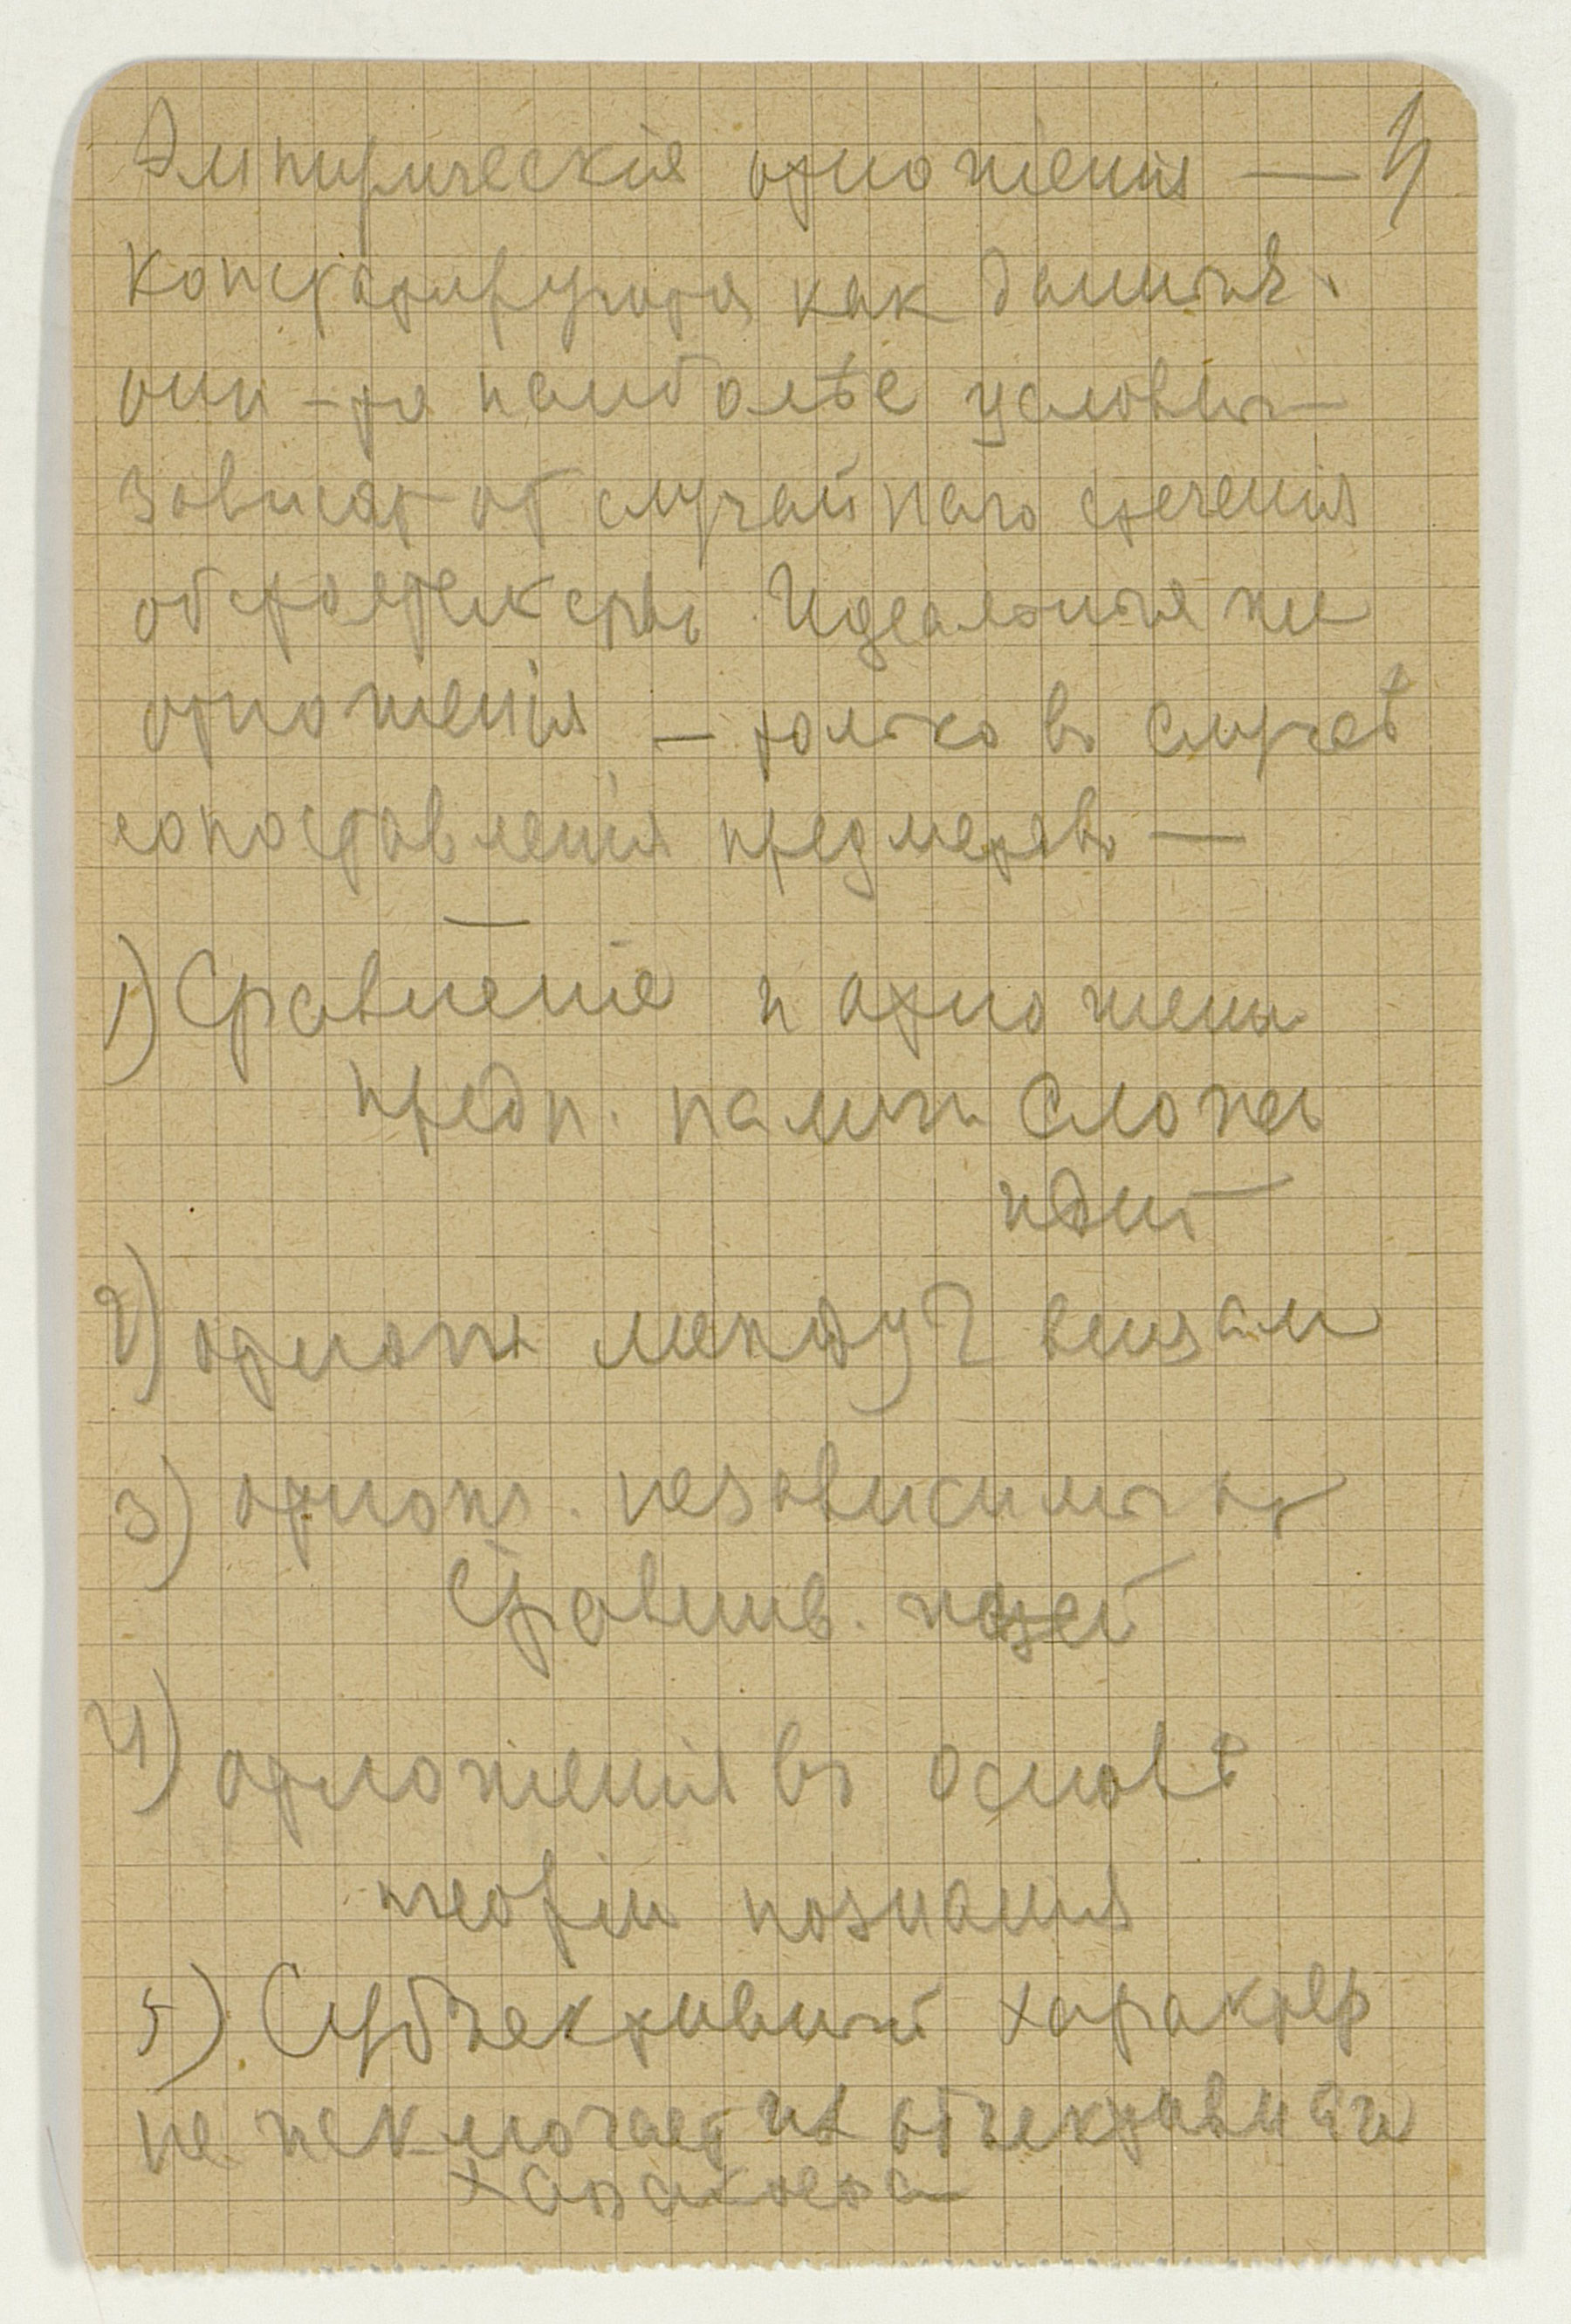 Эмпирическія отношенія — 4
констатируются как данныя.
они-то наиболѣе условны
зависят от случайнаго стеченія
обстоятельствъ. Идеальныя же
отношенія — только въ случаѣ
сопоставленія предметовъ —
1) Сравненіе и отношеніе
предп. памяти
2) отнош между 2 вещам
3) отнош. независимы от
сравнив.
4) отношенія въ основѣ
теоріи познанія
5) Субъективный характер
не исключает их объективнаго
характера